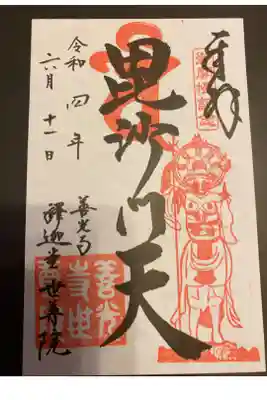 奉拝
毘沙門天
令和四年
六月十一日
善光寺
釋迦堂世尊院